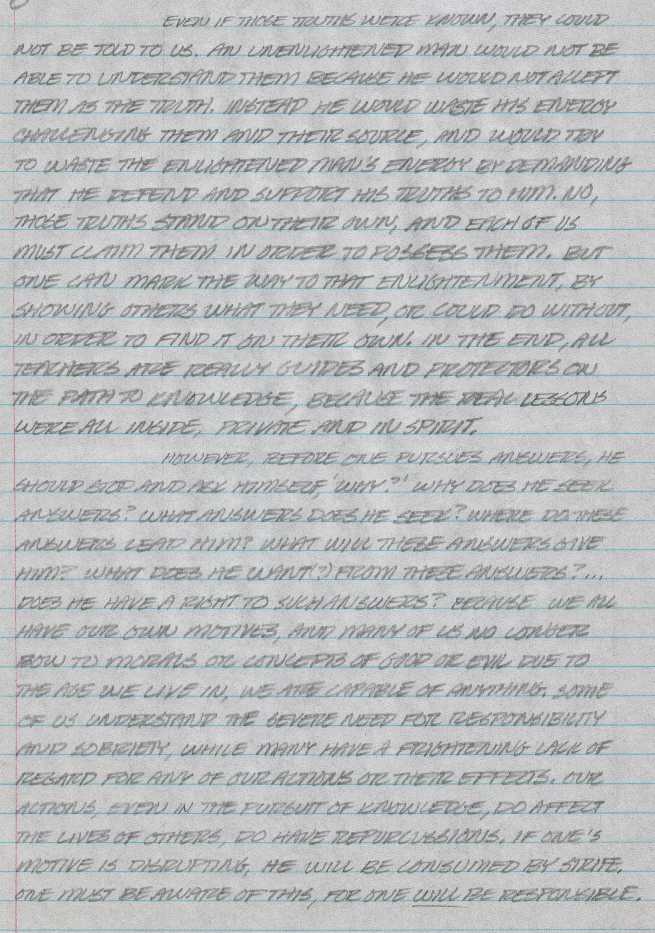 EVEN IF THOSE TRUTHS WERE KNOWN, THEY COULD
NOT BE TOLD TO US. AN UNENLIGHTENED MAN WOULD NOT BE
ABLE TO UNDERSTAND THEM BECAUSE HE WOULD NOT ACCEPT
THEM AS THE TRUTH. INSTEAD HE WOULD WASTE HIS ENERGY
CHALLENGING THEM AND THEIR SOURCE, AND WOULD TRY
TO WASTE THE ENLIGHTENED MAN'S ENERGY BY DEMANDING
THAT HE DEFEND AND SUPPORT HIS TRUTHS TO HIM. NO,
THOSE TRUTHS STAND ON THEIR OWN, AND EACH OF US
MUST CLAIM THEM IN ORDER TO POSSESS THEM. BUT
ONE CAN MARK THE WAY TO THAT ENLIGHTENMENT, BY
SHOWING OTHERS WHAT THEY NEED, OR COULD DO WITHOUT,
IN ORDER TO FIND IT ON THEIR OWN. IN THE END, ALL
TEACHERS ARE REALLY GUIDES AND PROTECTORS ON
THE PATH TO KNOWLEDGE, BECAUSE THE REAL LESSONS
WERE ALL INSIDE, PRIVATE AND IN SPIRIT.
HOWEVER, BEFORE ONE PURSUES ANSWERS, HE
SHOULD STOP AND ASK HIMSELF, 'WHY?' WHY DOES HE SEEK
ANSWERS? WHAT ANSWERS DOES HE SEEK? WHERE DO THESE
ANSWERS LEAD HIM? WHAT WILL THESE ANSWERS GIVE
HIM? WHAT DOES HE WANT(?) FROM THESE ANSWERS?...
DOES HE HAVE A RIGHT TO SUCH ANSWERS? BECAUSE WE ALL
HAVE OUR OWN MOTIVES, AND MANY OF US NO LONGER
BOW TO MORALS OR CONCEPTS OF GOOD OR EVIL DUE TO
THE AGE WE LIVE IN, WE ARE CAPABLE OF ANYTHING. SOME
OF US UNDERSTAND THE SEVERE NEED FOR RESPONSIBILITY
AND SOBRIETY, WHILE MANY HAVE A FRIGHTENING LACK OF
REGARD FOR ANY OF OUR ACTIONS OR THEIR EFFECTS. OUR
ACTIONS, EVEN IN THE PURSUIT OF KNOWLEDGE, DO AFFECT
THE LIVES OF OTHERS, DO HAVE REPURCUSSIONS. IF ONE'S
MOTIVE IS DISRUPTING, HE WILL BE CONSUMED BY STRIFE.
ONE MUST BE AWARE OF THIS, FOR ONE WILL BE RESPONSIBLE.